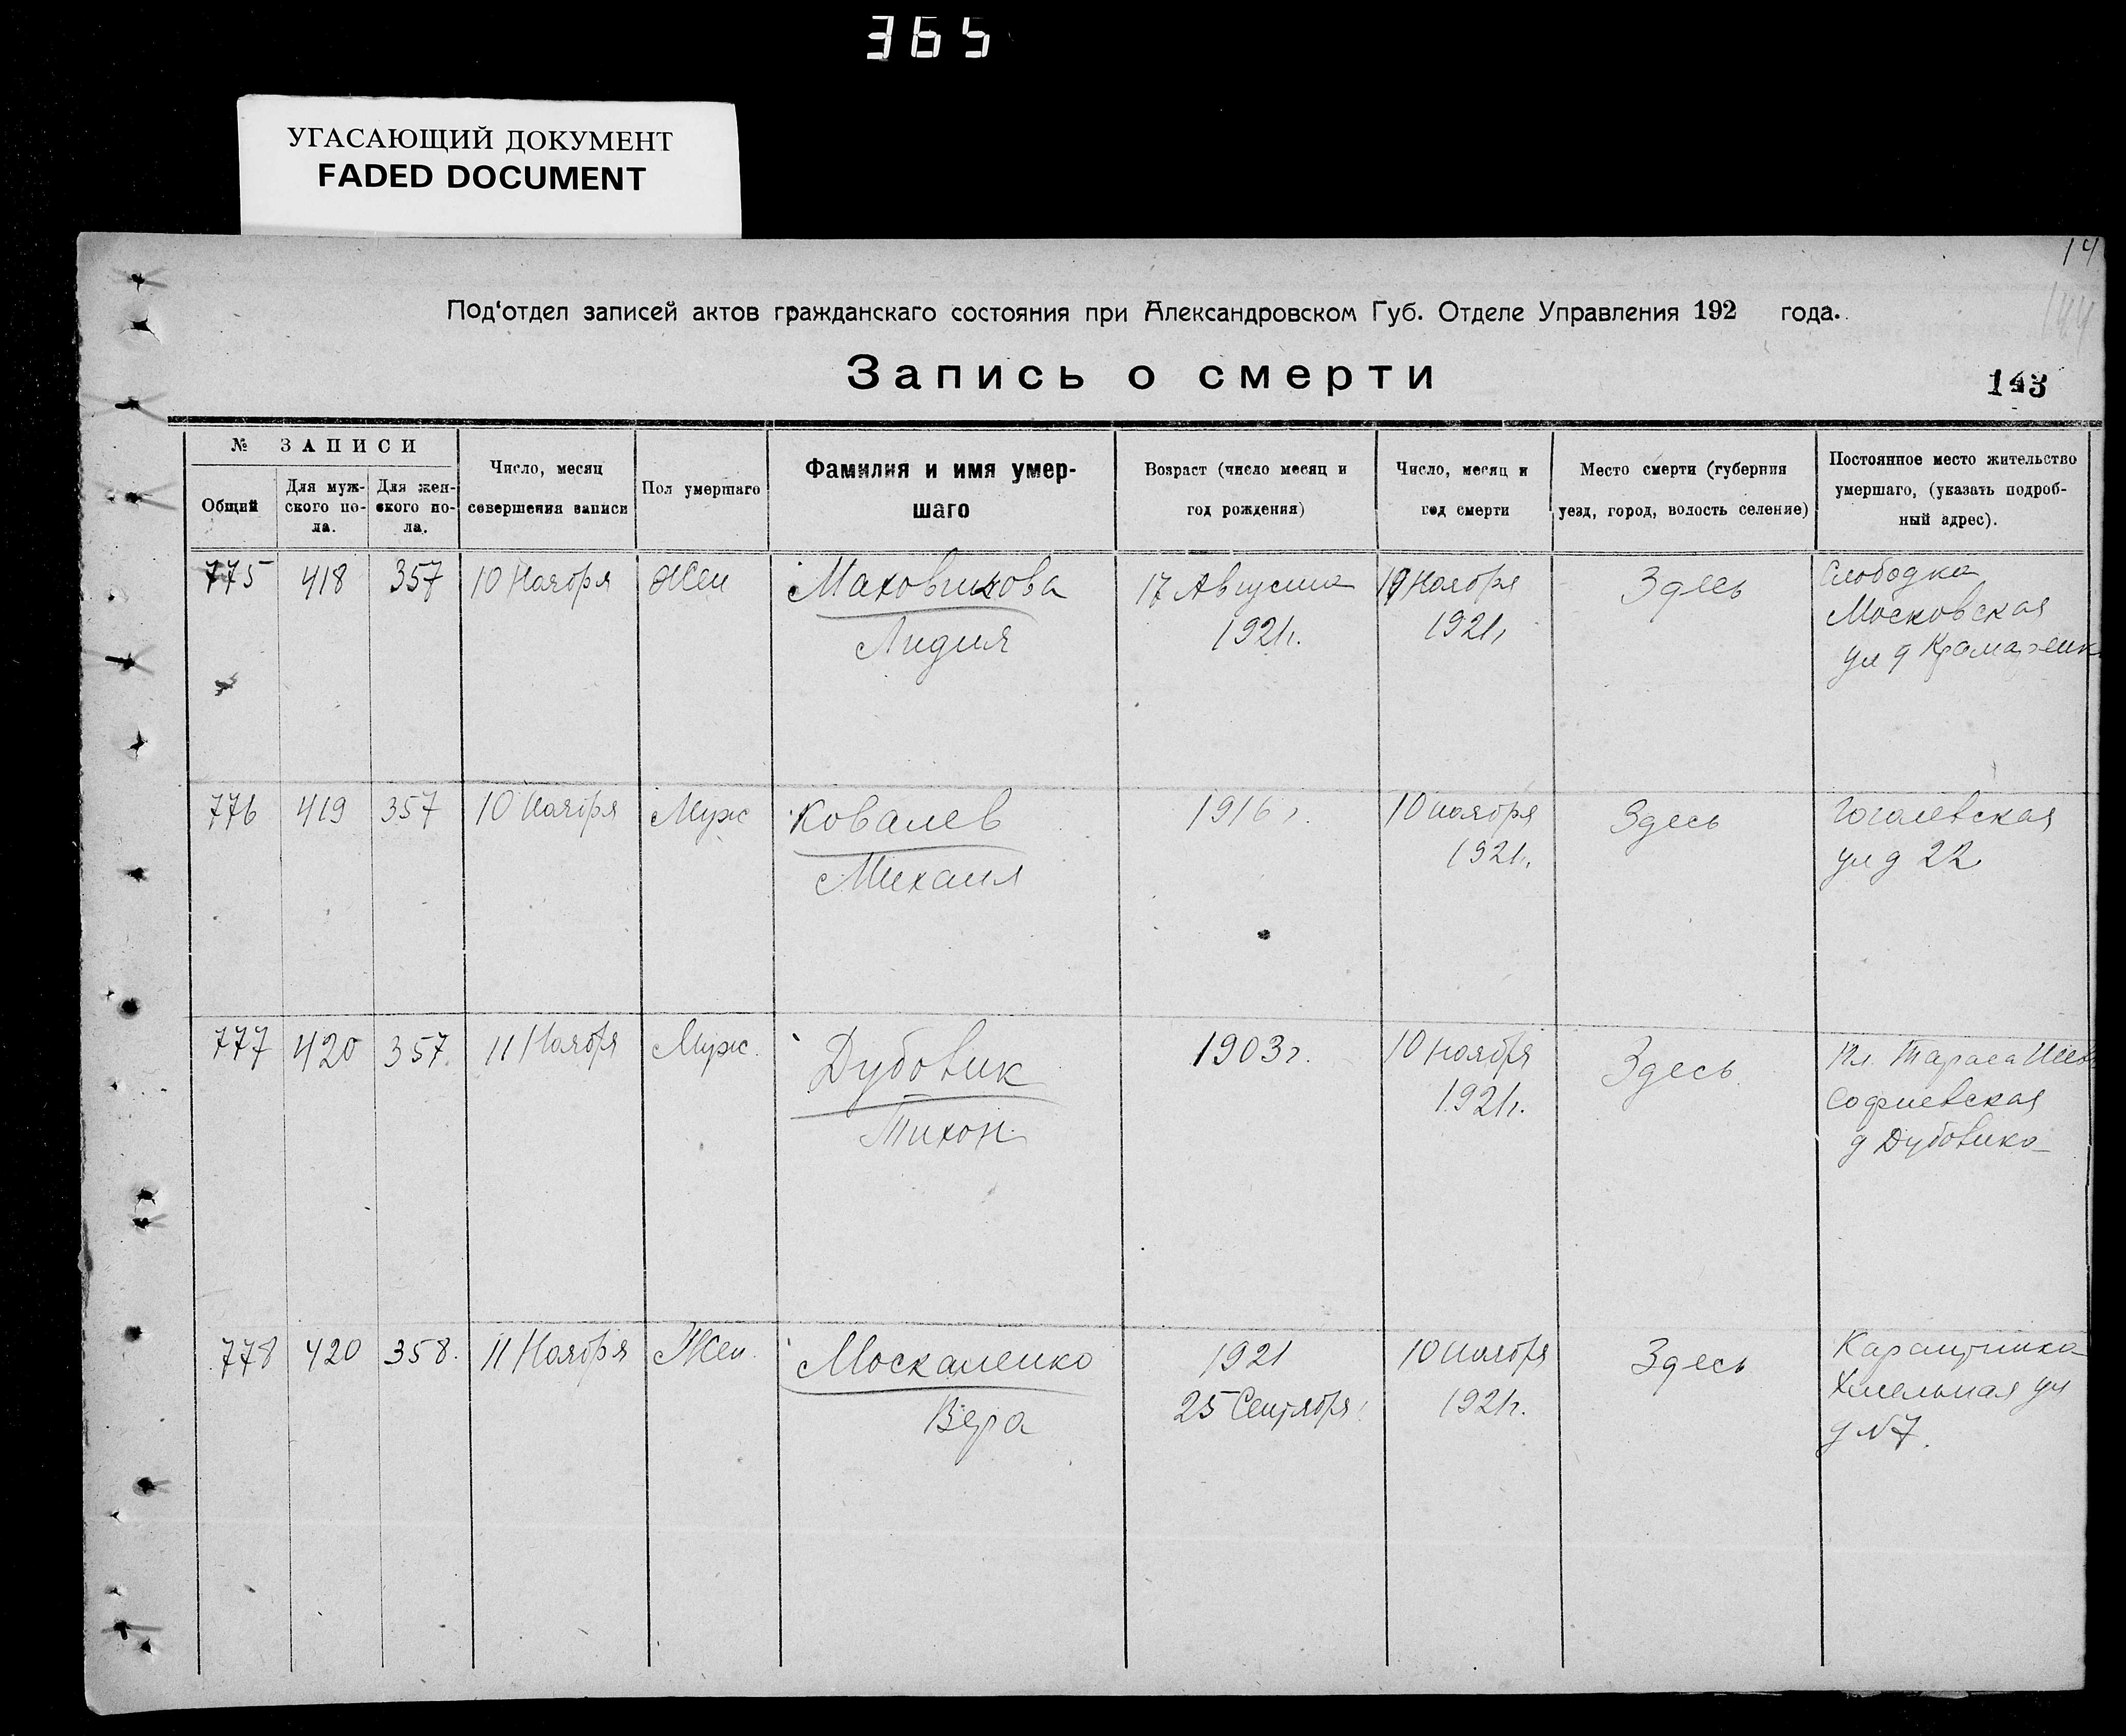 365
УГАСАЮЩИЙ ДОКУМЕНТ
FADED DOCUMENT
14
144
Под'отдел записей актов гражданскаго состояния при Александровском Губ. Отделе Управления 192 года.
Запись о смерти
143
№ ЗАПИСИ
Общий
Для муж-
ского по-
ла.
Для жен-
ского по-
ла.
Число, месяц
совершения записи
Пол умершаго
Фамилия и имя умер-
шаго
Возраст (число месяц и
год рождения)
Число, месяц и
год смерти
Место смерти (губерния
уезд, город, волость селение)
Постоянное место жительство
умершаго, (указать подроб-
ный адрес).
775 418 357 10 Ноября Жен Маховикова 17 Августа Ноября Здесь Слободка
Лидия 1921г. 1921г Московская
ул д
776 419 357 10 Ноября Муж Ковалев 1916г. 10 ноября Здесь Гоголевская
Михаил 1921г. ул д 22
777 420 357. 11 Ноября Муж. Дубовик 1903г. 10 ноября Здесь Пл. Тараса
Тихон. 1921г. Софиевская
д Дубовика
778 420 358. 11 Ноября Жен. Москаленко 1921 10 ноября Здесь Карантинка
Вера 25 Сентября 1921г. Хмельная ул
д №7.